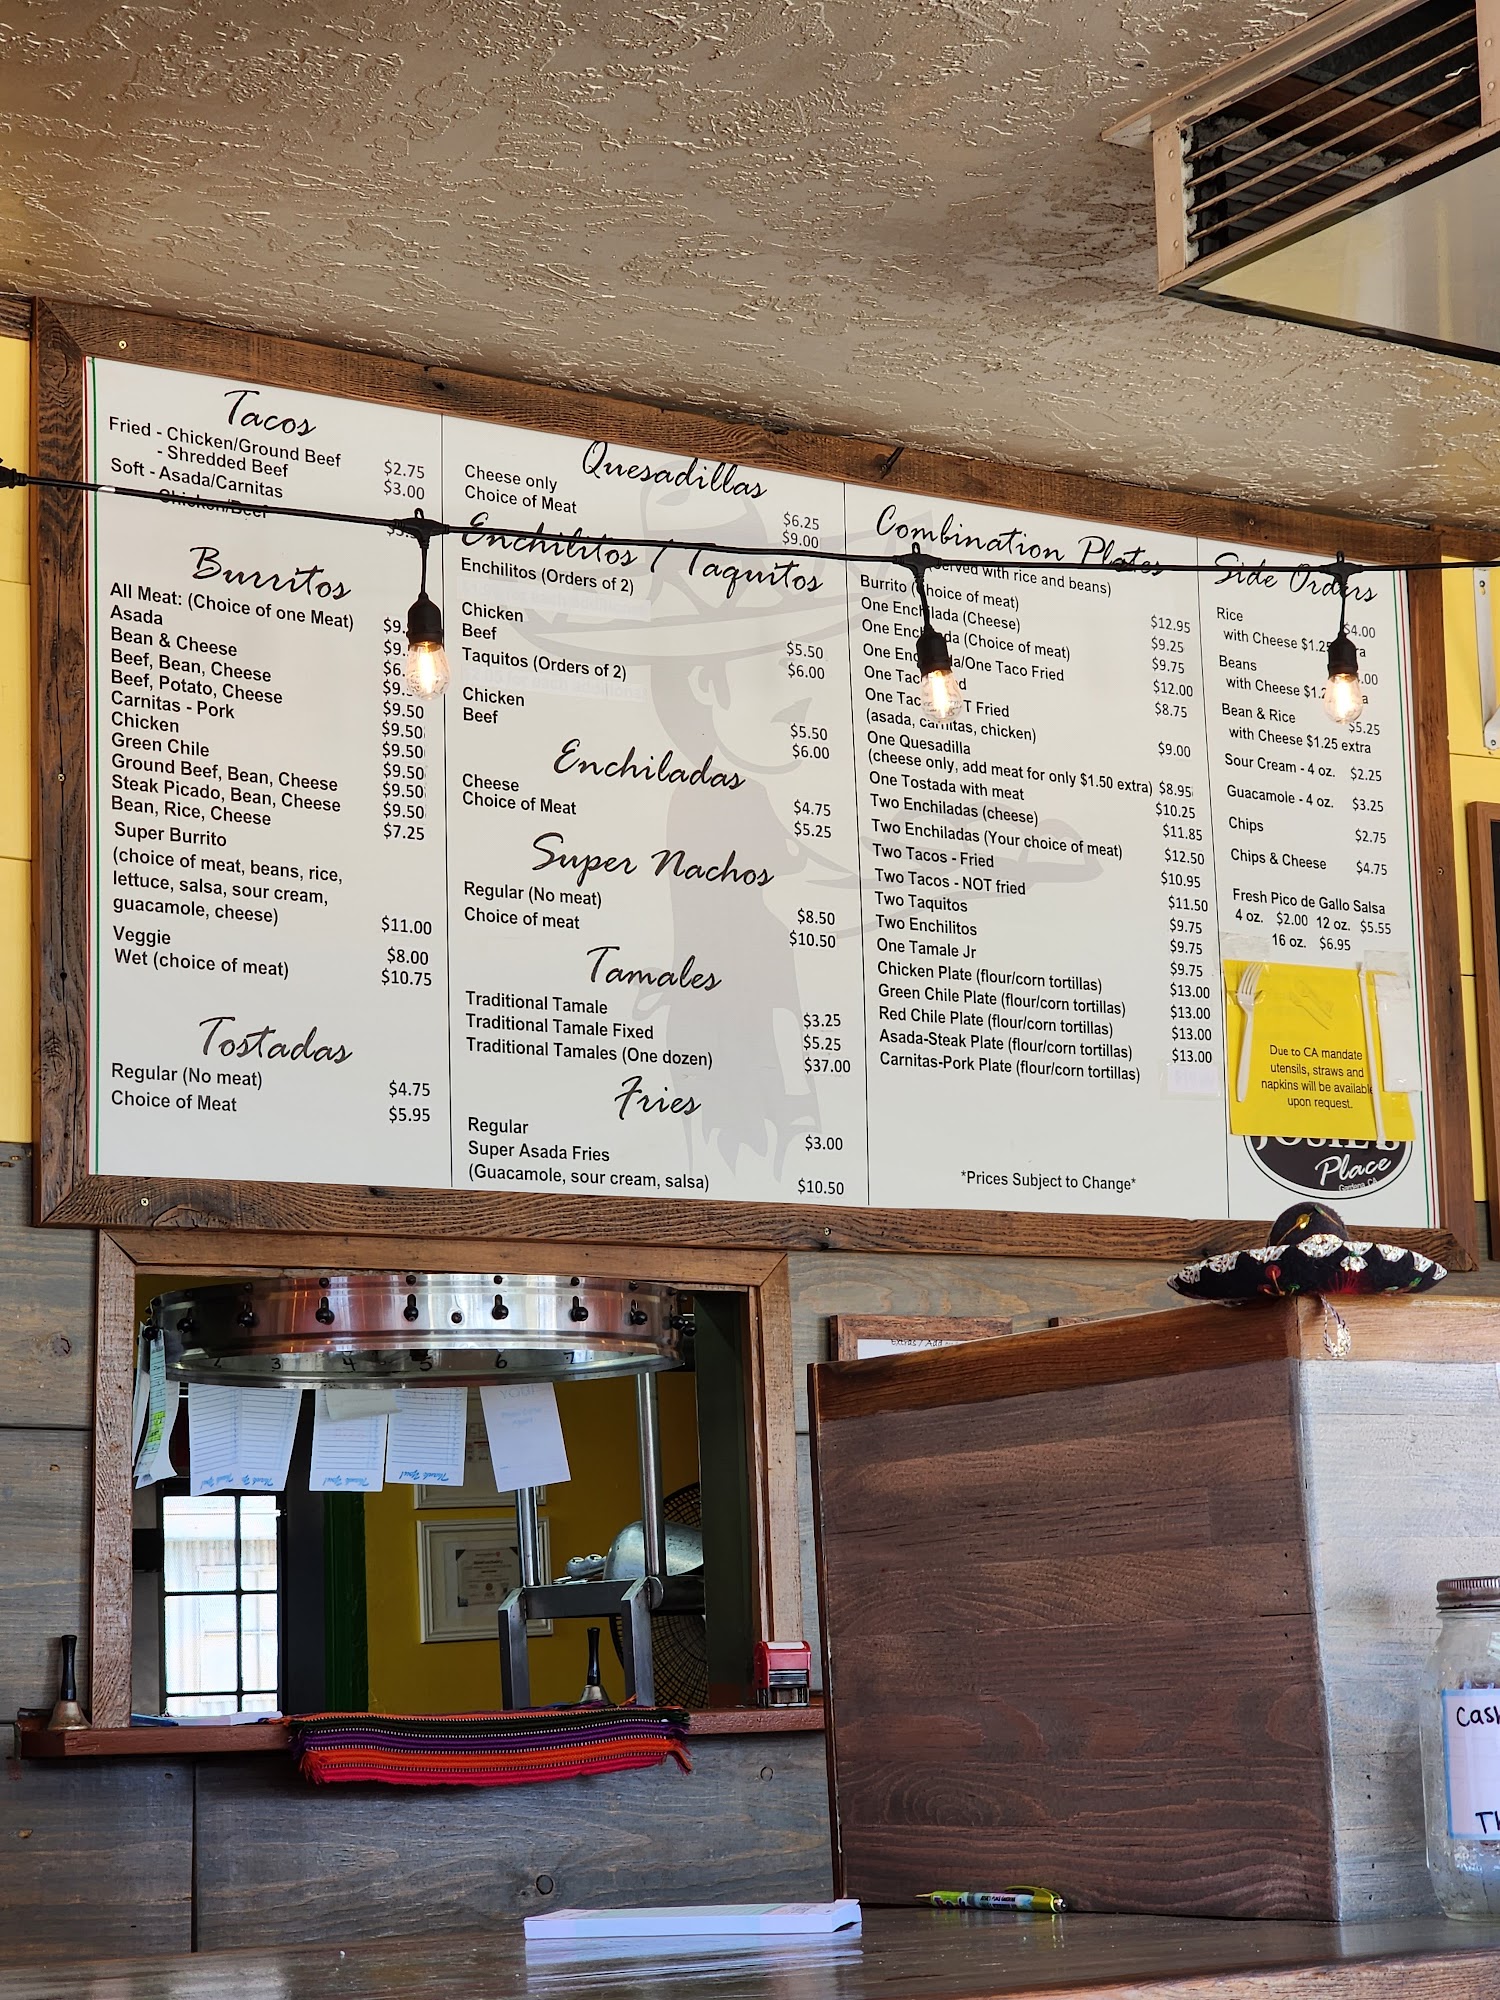 Tacos
Fried - Chicken/Ground Beef $2.75
- Shredded Beef $3.00
Soft - Asada/Carnitas
- Chicken/Beef
Burritos
All Meat: (Choice of one Meat)
Asada
Bean & Cheese
Beef, Bean, Cheese
Beef, Potato, Cheese $9.50
Carnitas - Pork $9.50
Chicken $9.50
Green Chile $9.50
Ground Beef, Bean, Cheese $9.50
Steak Picado, Bean, Cheese $7.25
Bean, Rice, Cheese
Super Burrito
(choice of meat, beans, rice,
lettuce, salsa, sour cream,
guacamole, cheese) $11.00
Veggie $8.00
Wet (choice of meat) $10.75
Tostadas
Regular (No meat) $4.75
Choice of Meat $5.95
Quesadillas
Cheese only $6.25
Choice of Meat $9.00
Enchilitos / Taquitos
Enchilitos (Orders of 2)
Chicken $5.50
Beef $6.00
Taquitos (Orders of 2)
Chicken $5.50
Beef $6.00
Enchiladas
Cheese $4.75
Choice of Meat $5.25
Super Nachos
Regular (No meat) $8.50
Choice of meat $10.50
Tamales
Traditional Tamale $3.25
Traditional Tamale Fixed $5.25
Traditional Tamales (One dozen) $37.00
Fries
Regular $3.00
Super Asada Fries
(Guacamole, sour cream, salsa) $10.50
Combination Plates
served with rice and beans)
Burrito (Choice of meat) $12.95
One Enchilada (Cheese) $9.25
One Enchilada (Choice of meat) $9.75
One Enchilada/One Taco Fried $12.00
One Taco Fried $8.75
One Taco NOT Fried
(asada, carnitas, chicken) $9.00
One Quesadilla
(cheese only, add meat for only $1.50 extra) $8.95
One Tostada with meat $10.25
Two Enchiladas (cheese) $11.85
Two Enchiladas (Your choice of meat) $12.50
Two Tacos - Fried $10.95
Two Tacos - NOT fried $11.50
Two Taquitos $9.75
Two Enchilitos $9.75
One Tamale Jr $9.75
Chicken Plate (flour/corn tortillas) $13.00
Green Chile Plate (flour/corn tortillas) $13.00
Red Chile Plate (flour/corn tortillas) $13.00
Asada-Steak Plate (flour/corn tortillas) $13.00
Carnitas-Pork Plate (flour/corn tortillas)
*Prices Subject to Change*
Side Orders
Rice $4.00
with Cheese $1.25 extra
Beans
with Cheese
Bean & Rice $5.25
with Cheese $1.25 extra
Sour Cream - 4 oz. $2.25
Guacamole - 4 oz. $3.25
Chips $2.75
Chips & Cheese $4.75
Fresh Pico de Gallo Salsa
4 oz. $2.00 12 oz. $5.55
16 oz. $6.95
Due to CA mandate
utensils, straws and
napkins will be available
upon request.
JOSIE'S
Place
Gardena, CA
Extras / Add
3 4 5 6 7
Thank You!
Thank You!
Thank You!
Cash